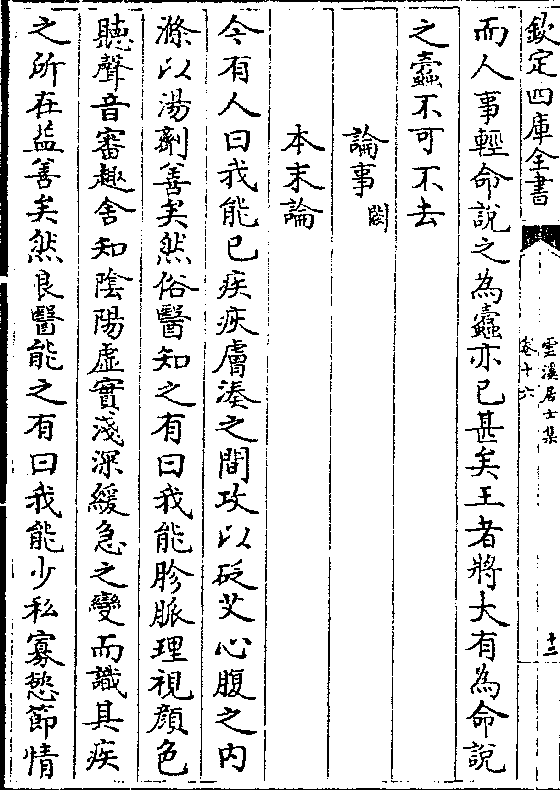 欽定四庫全書
雲溪居士集
卷十六
十三
而人事輕命說之為蠹亦已甚矣王者將大有為命說
之蠹不可不去
論事闕
本末論
今有人曰我能已疾疾膚湊之間攻以砭艾心腹之内
滌以湯劑善矣然俗醫知之有曰我能胗脈理視顔色
聽聲音審趣舍知陰陽虛實淺深緩急之變而識其疾
之所在益善矣然良醫能之有曰我能少私寡慾節情